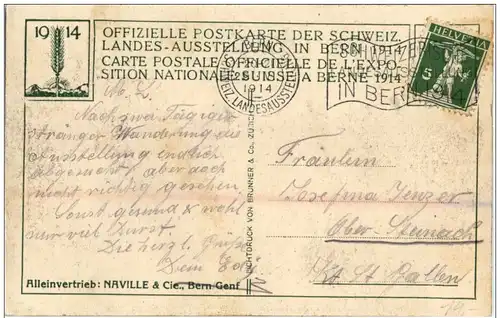 19 14
OFFIZIELLE POSTKARTE DER SCHWEIZ.
LANDES-AUSSTELLUNG IN BERN 1914
CARTE POSTALE OFFICIELLE DE L'EXPO-
SITION NATIONALE SUISSE A BERNE 1914
1914
LANDESAUSST
IN BERN 1914
HELVETIA
5
M. L.
Nach zwei Tägiger
stränger Wanderung die
Ausstellung endlich
abgesucht, aber doch
nicht richtig gesehen.
Sonst gesund & wohl
nur viel Durst.
Die herzl. Grüße
Dein Edi
LICHTDRUCK VON BRUNNER & Co., ZÜRICH
Fräulein
Josefina Jenzer
Ober Steinach
Kt. St Gallen
Alleinvertrieb: NAVILLE & Cie., Bern-Genf